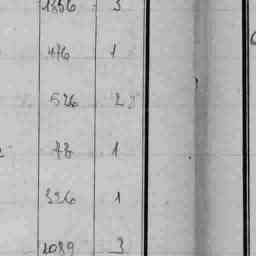 1856 3
476 1
526 2
78 1
326 1
1089 3